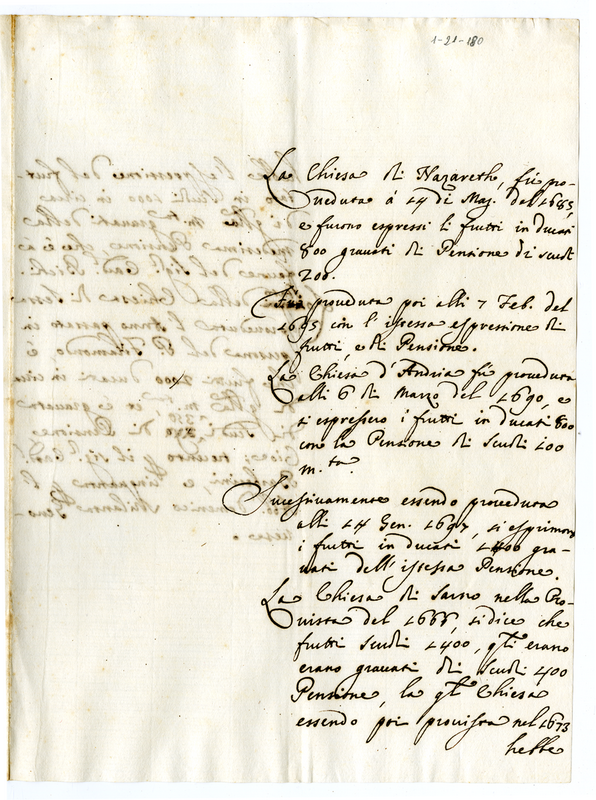 1-21-180
La Chiesa di Nazareth, fù pro-
ueduta à 14 di Mag. del 1685,
e furono espressi li frutti in ducati
800 grauati di Pensione di scudi
200.
Fù proueduta poi alli 7 Feb. del
1695 con l'istessa espressione di
frutti, e di Pensione.
La Chiesa d'Andria fù proueduta
alli 6 di Marzo del 1690, e
si espressero i frutti in ducati 800
con la Pensione di scudi 100
m.ta
Sucessiuamente essendo proueduta
alli 14 Gen. 1697, si esprimono
i frutti in ducati 1400 gra-
uati dell'istessa Pensione.
La Chiesa di Sarno nella Pro-
uista del 1666, si dice che
frutti scudi 1400, q.li erano
erano grauati di scudi 400
Pensione, la q.l Chiesa
essendo poi prouista nel 1673
hebbe